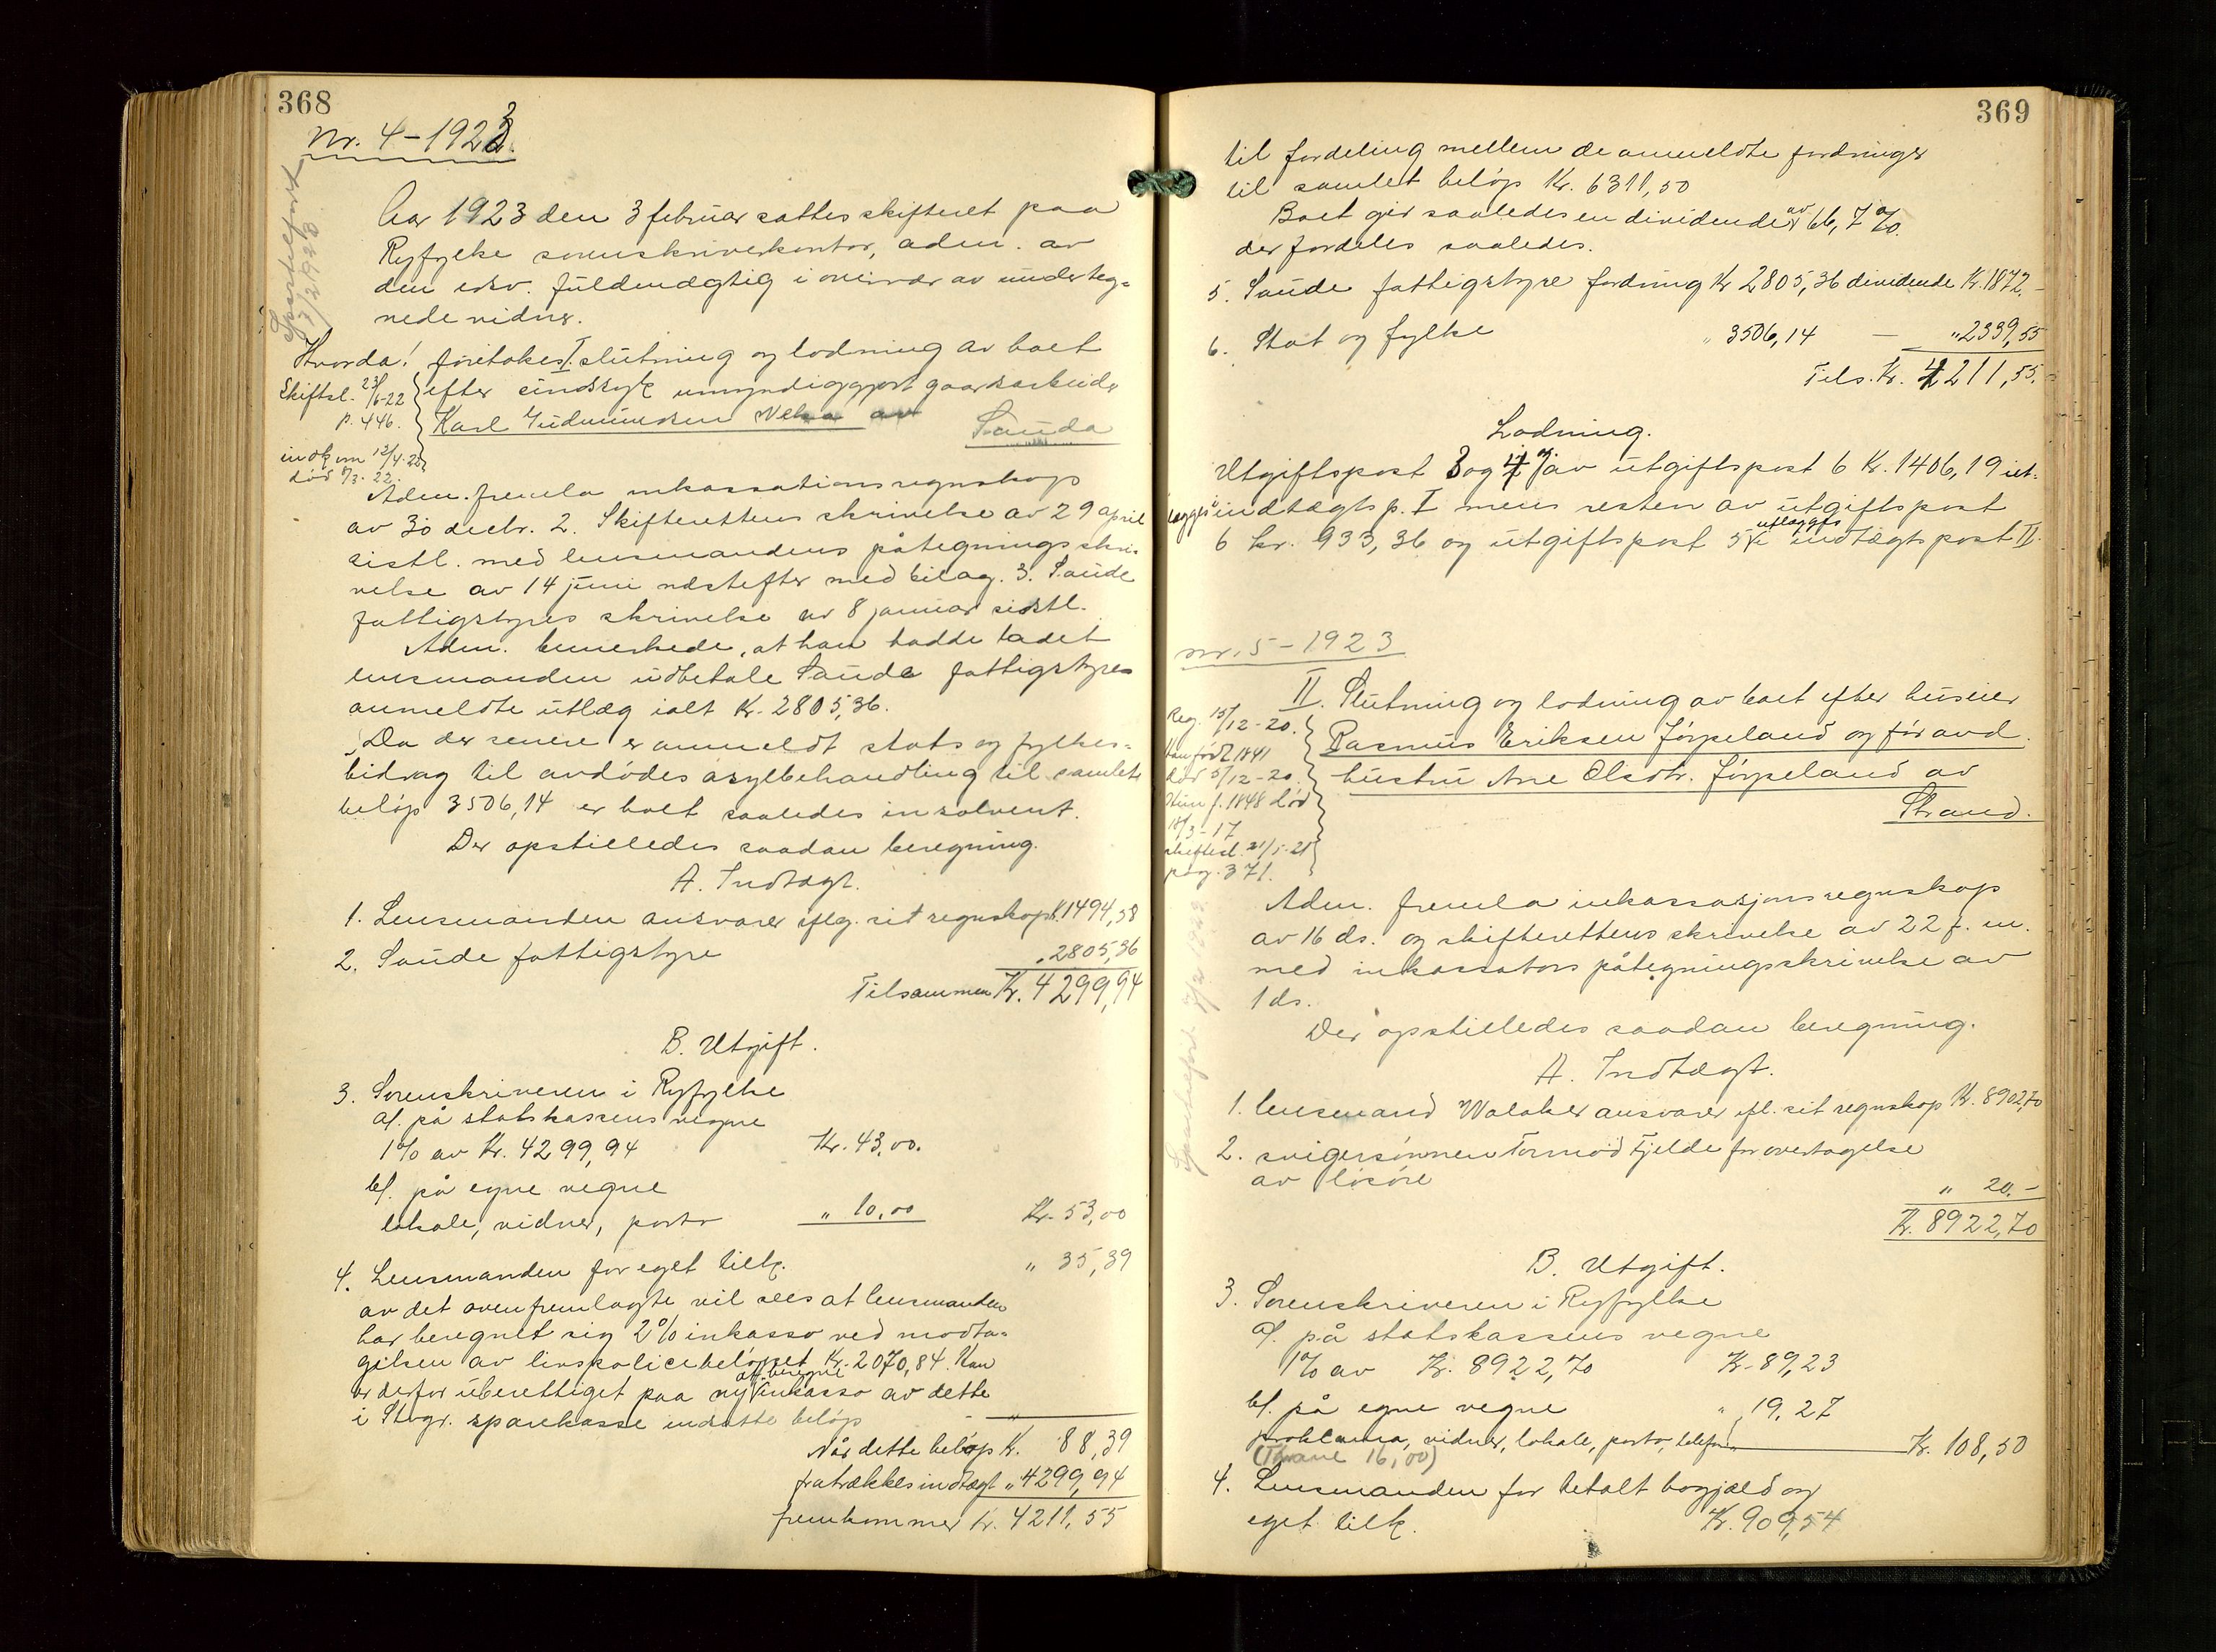 368
Nr. 4-1923.
Sportelført
7/2 1923
Aar 1923 den 3 februar sattes skifteret paa
Ryfylke sorenskriverkontor, adm. av
den edsv. fuldmægtig i overvær av underteg-
nede vidner.
Hvorda! foretokes I. slutning og lodning av boet
Skiftsl. 23/6-22
p. 446.
indk. om 12/4-22
død 8/3. 22.
efter sindssyk umyndiggjort gaardsarbeider
Karl Gudmundsen Vela av
Sauda
Adm. fremla inkassationsregnskap
av 30 decbr. 2. Skifterettens skrivelse av 29 april
sistl. med lensmandens påtegningsskri-
velse av 14 juni næstefter med bilag. 3. Saude
fattigstyres skrivelse av 8 januar sidstl.
Adm. bemerkede, at han hadde ladet
lensmanden utbetale Saude fattigstyres
anmeldte utlæg ialt Kr. 2805,36.
Da der senere er anmeldt stats og fylkes-
bidrag til avdødes asylbehandling til samlet
beløp 3506,14 er boet saaledes insolvent.
Der opstilledes saadan beregning.
A. Indtægt.
1. Lensmanden ansvarer iflg. sit regnskap K. 1494,58
2. Saude fattigstyre " 2805,36
Tilsammen Kr. 4299,94
B. Utgift.
3. Sorenskriveren i Ryfylke
a/. på statskassens vegne
1% av Kr. 4299,94 Kr. 43,00.
b/. på egne vegne
lokale, vidner, porto " 10,00 Kr. 53,00
4. Lensmanden for eget tilk. " 35,39
av det ovenfremlagte vil sees at lensmanden
har beregnet sig 2% inkasso ved modta-
gelsen av livspolicebeløpet Kr. 2070,84. Han
er derfor uberettiget paa ny at beregne inkasso av dette
i Stvgr. sparekasse indsatte beløp
Når dette beløp K. 88,39
fratrækkes indtægt " 4299,94
fremkommer Kr. 4211,55
369
til fordeling mellem de anmeldte fordringer
til samlet beløp Kr. 6311,50
Boet gir saaledes en dividende av 66,7%.
der fordeles saaledes.
5. Saude fattigstyre fordring Kr 2805,36 dividende Kr. 1872.-
6. Stat og fylke " 3506,14 — " 2339,55
Tils. Kr. 4211,55.
Lodning.
Utgiftspost 3 og 4 og av utgiftspost 6 Kr. 1406,19 ut-
lægges i indtægtsp. I mens resten av utgiftspost
6 kr. 933,36 og utgiftspost 5 utlægges i indtægtspost II.
nr. 5-1923
II. Slutning og lodning av boet efter huseier
Reg. 15/12-20.
Han født 1841
død 5/12-20.
Hun f. 1848 død
18/3-17
skiftesl. 21/5-21
pag. 371.
Rasmus Eriksen Jørpeland og før avd.
hustru Ane Olsdtr. Jørpeland av
Strand.
Sportelført 7/2 1923
Adm. fremla inkassasjonsregnskap
av 16 ds. og skifterettens skrivelse av 22 f. m.
med inkassators påtegningsskrivelse av
1 ds.
Der opstilledes saadan beregning.
A. Indtægt.
1. lensmand Walaker ansvarer ifl. sit regnskap Kr. 8902,70
2. svigersønnen Tormod Fjelde for overtagelse
av løsøre " 20.-
Kr. 8922,70
B. Utgift.
3. Sorenskriveren i Ryfylke
a/. på statskassens vegne
1% av Kr. 8922,70 Kr. 89,23
b/. på egne vegne " 19,27
proklama, vidner, lokale, porto, telefon Kr. 108,50
(Thrane 16,00)
4. Lensmanden for betalt bogjæld og
eget tilk. Kr. 909,54